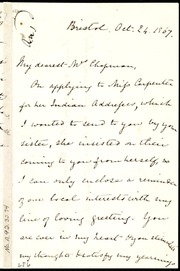 Bristol, Oct. 24. 1867.
My dearest Mrs Chapman,
On applying to Miss Carpenter
for her Indian Addresses, which
I wanted to send to you by your
sister, she insisted on their
coming to you from herself, so
I can only enclose a reminder
of our local interests with my
line of loving greeting. You
are ever in my heart &
my thoughts, my yearnings